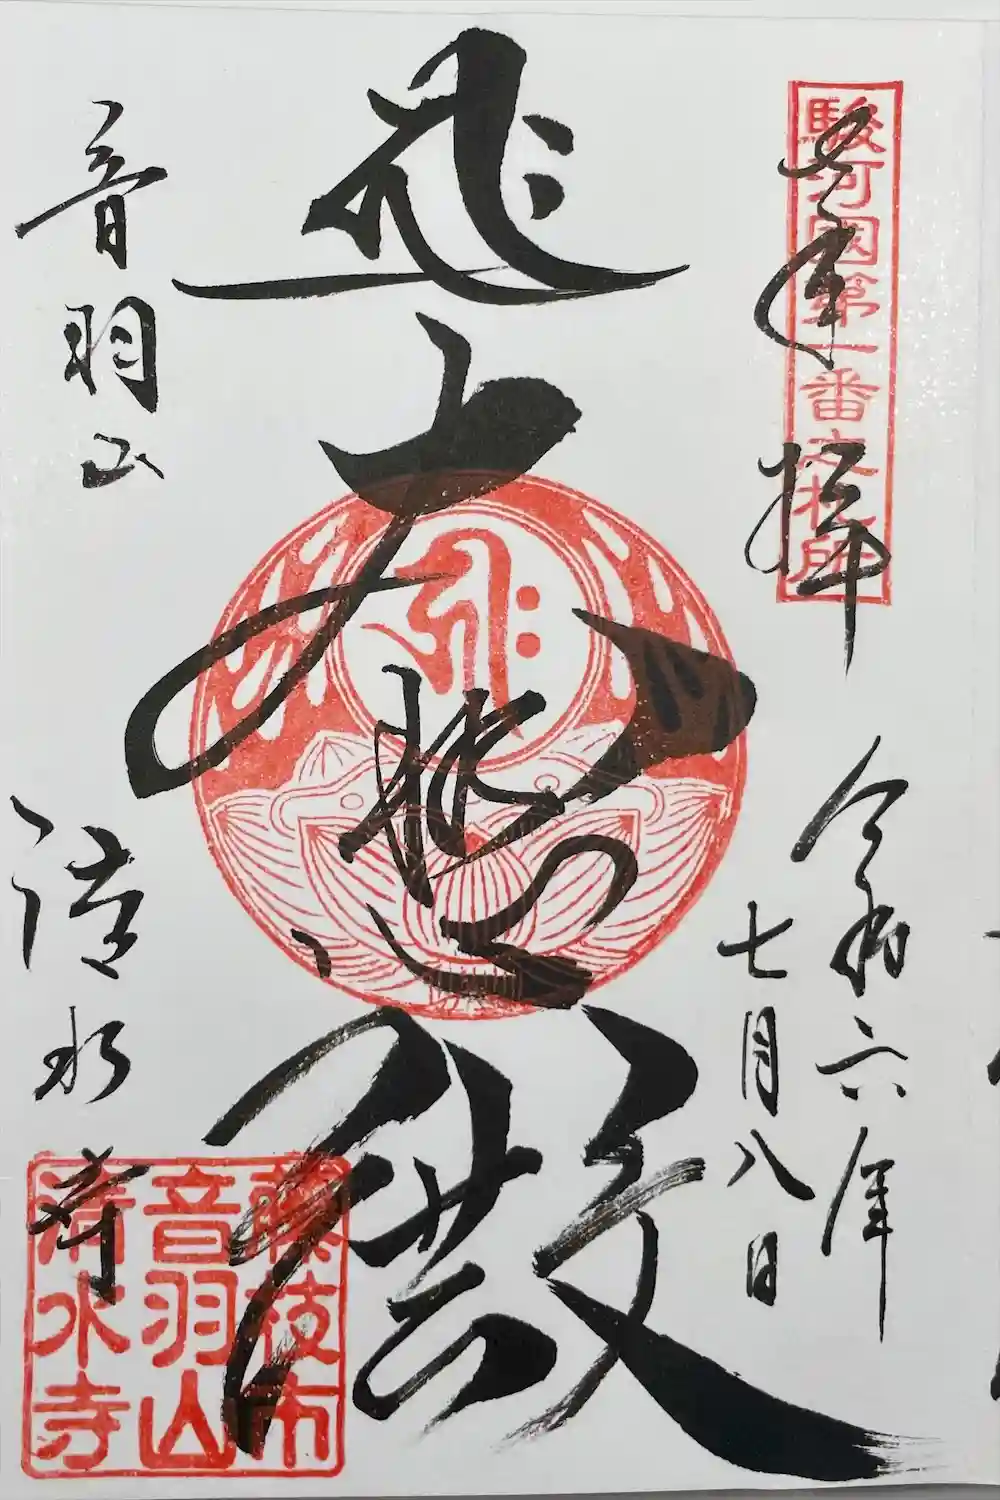 駿河國第一番之札所
奉拝
令和六年
七月八日
大
音羽山
清水寺
藤枝市
音羽山
清水寺